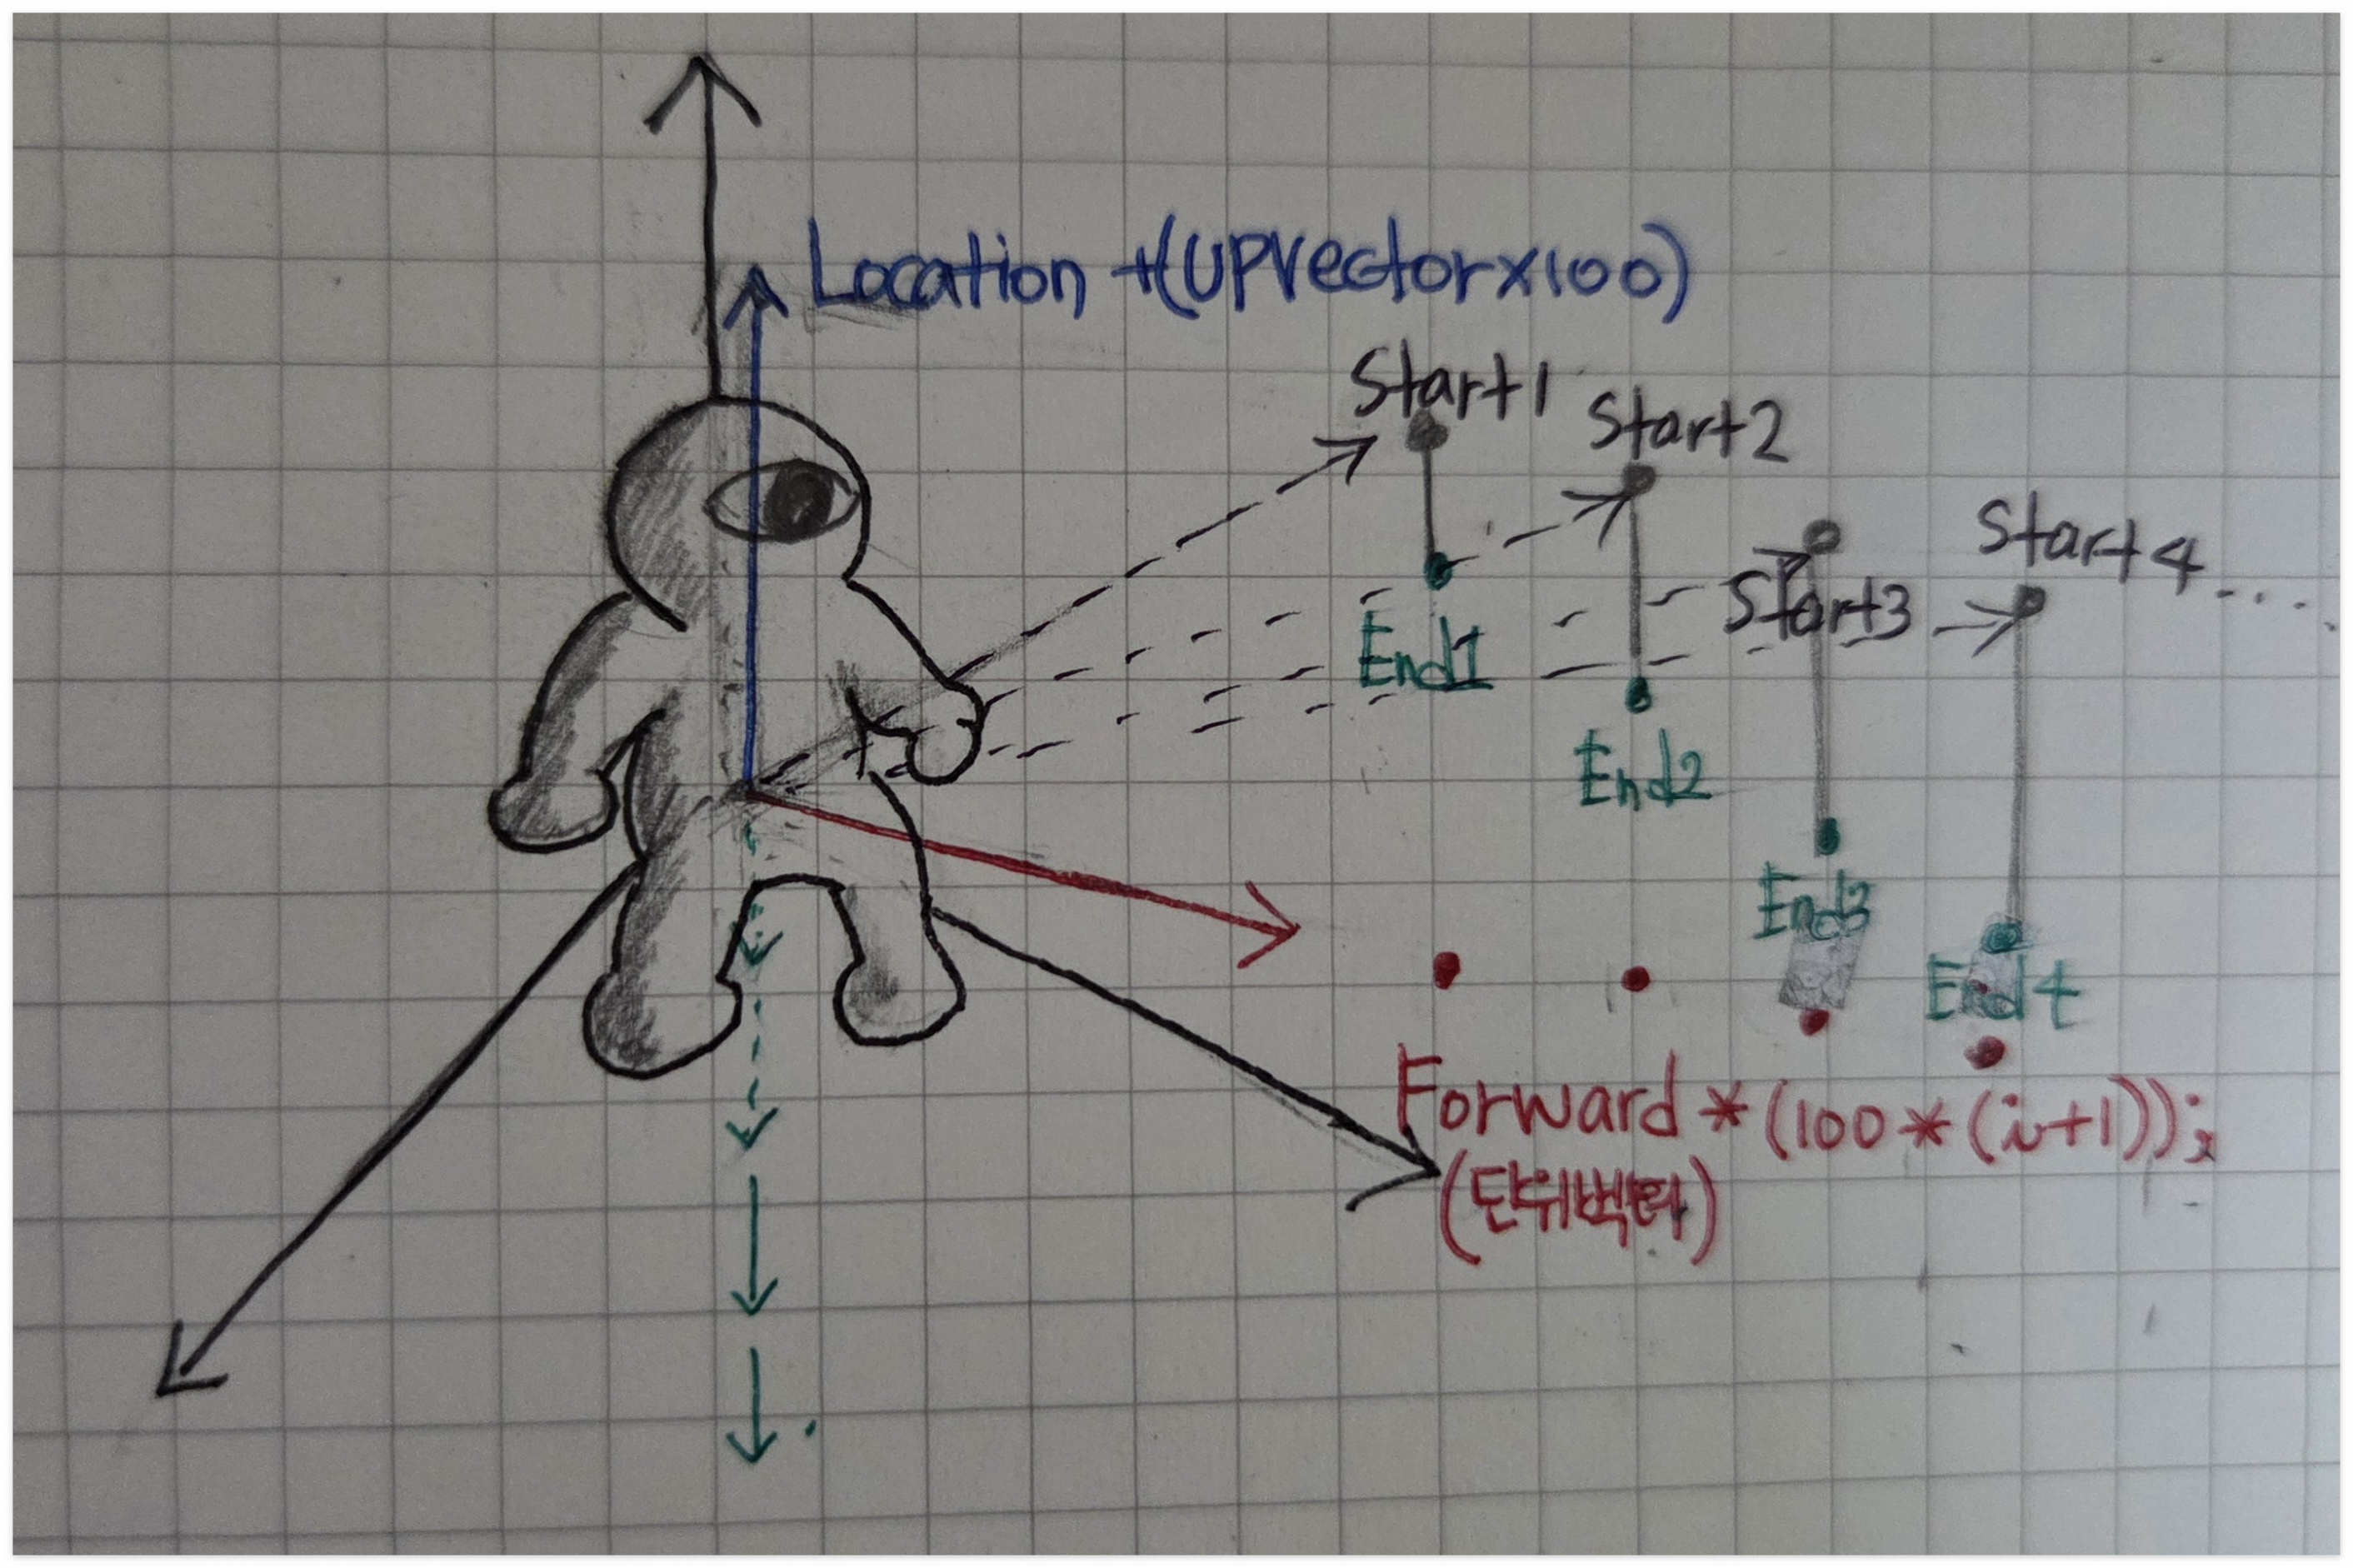 Location +(UPVectorx100)
Start1
Start2
Start3
Start4....
End1
End2
End3
End4
Forward * (100 * (i+1));
(단위벡터)